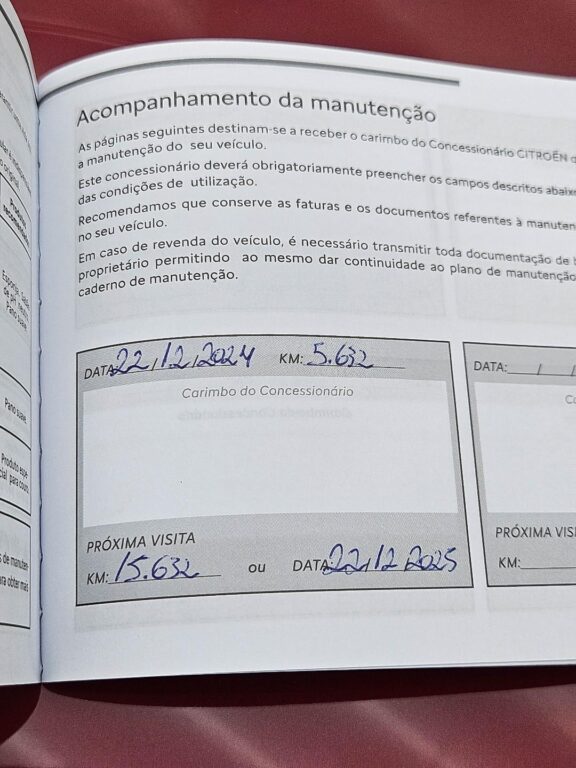 Acompanhamento da manutenção
As páginas seguintes destinam-se a receber o carimbo do Concessionário CITROËN
a manutenção do seu veículo.
Este concessionário deverá obrigatoriamente preencher os campos descritos abaixo
das condições de utilização.
Recomendamos que conserve as faturas e os documentos referentes à manuten
no seu veículo.
Em caso de revenda do veículo, é necessário transmitir toda documentação de
proprietário permitindo ao mesmo dar continuidade ao plano de manutenção
caderno de manutenção.
DATA: 22/12/2024 KM: 5.632
Carimbo do Concessionário
PRÓXIMA VISITA
KM: 15.632 ou DATA: 22/12/2025
DATA: / /
PRÓXIMA VIS
KM:
Pano suave
Pano suave
Produto espe-
cial para couro
s de manuten-
ara obter mais